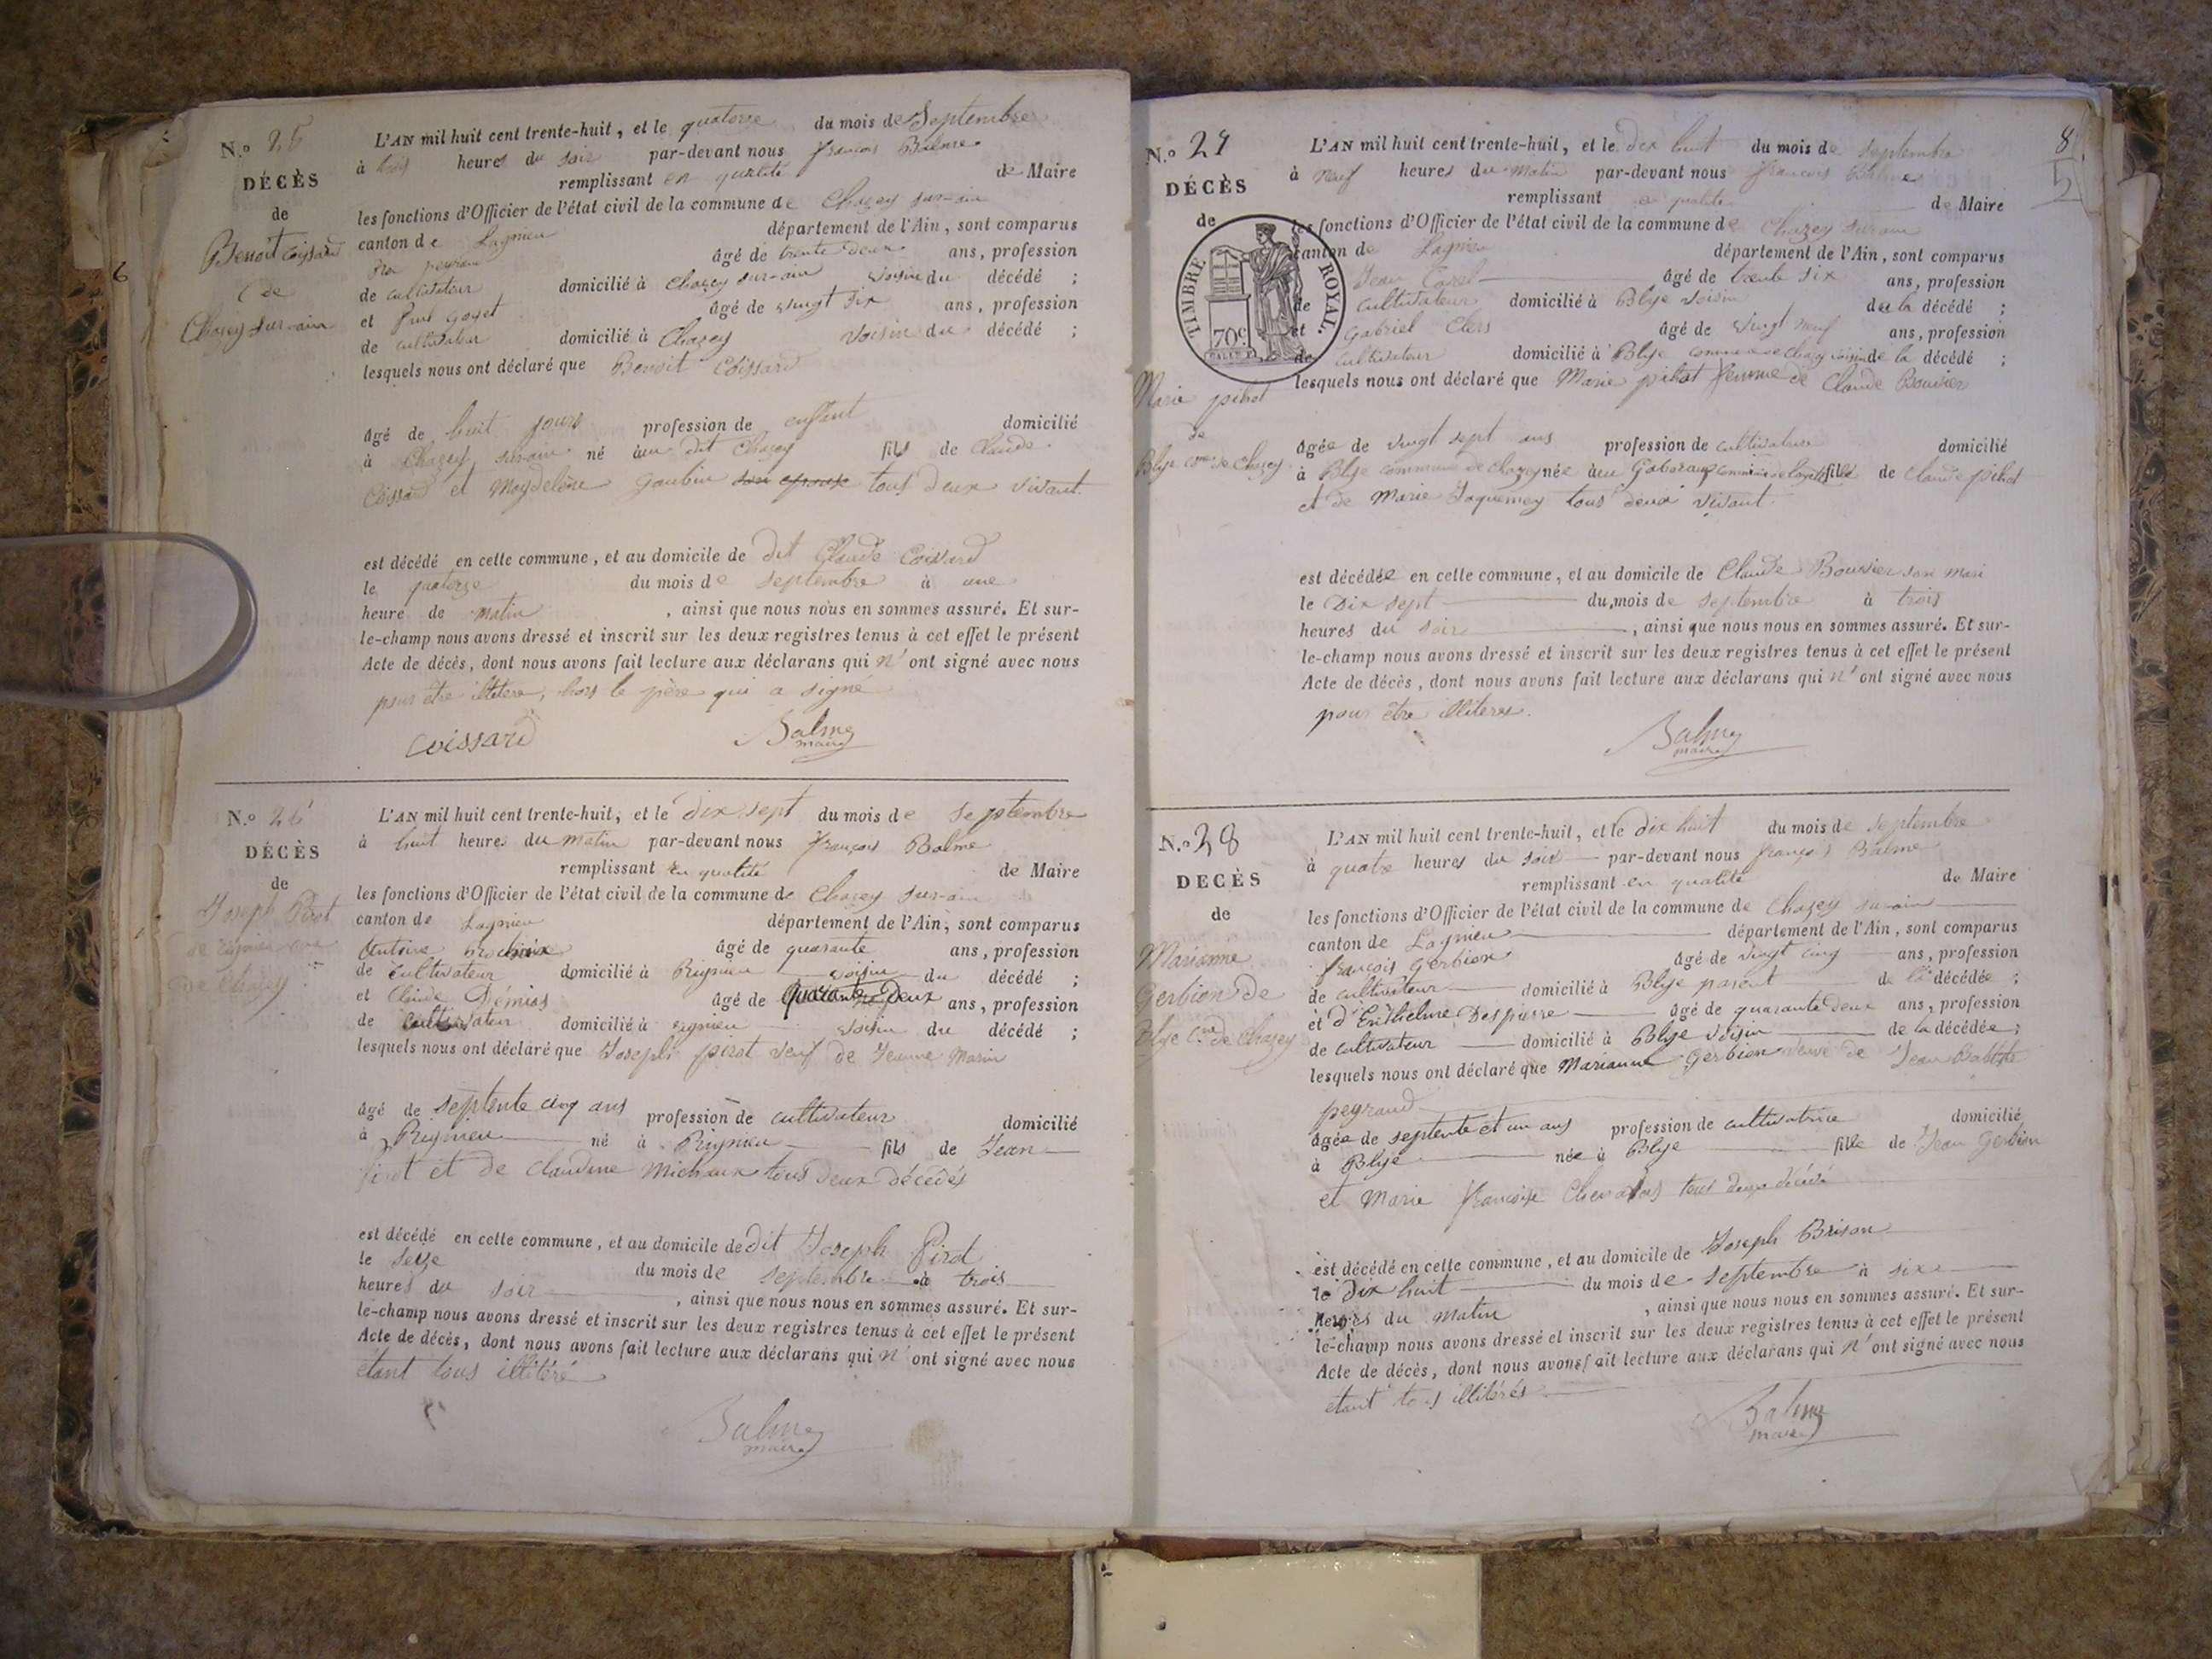 N.o 25
DÉCÈS
de
Benoit Coissard
de
Chazey-sur-ain
L'AN mil huit cent trente-huit, et le quatorze du mois de Septembre
à trois heures du soir par-devant nous françois Balme
remplissant en qualité de Maire
les fonctions d'Officier de l'état civil de la commune de Chazey sur-ain
canton de Lagnieu département de l'Ain, sont comparus
âgé de trente deux ans, profession
de cultivateur domicilié à Chazey sur-ain voisin du décédé ;
et Paul Goyet âgé de vingt six ans, profession
de cultivateur domicilié à Chazey voisin du décédé ;
lesquels nous ont déclaré que Benoit Coissard
âgé de huit jours profession de enffant domicilié
à Chazey sur-ain né au dit Chazey fils de Claude
Coissard et Magdeleine Goubin son epouse tous deux vivant.
est décédé en cette commune, et au domicile de dit Claude Coissard
le quatorze du mois de septembre à une
heure de matin, ainsi que nous nous en sommes assuré. Et sur-
le-champ nous avons dressé et inscrit sur les deux registres tenus à cet effet le présent
Acte de décès, dont nous avons fait lecture aux déclarans qui n'ont signé avec nous
pour être illitere, hors le père qui a signé
Coissard Balme
maire
N.o 26
DÉCÈS
de
Joseph Pirot
de Rignieu
de Chazey
L'AN mil huit cent trente-huit, et le dix sept du mois de septembre
à huit heures du matin par-devant nous françois Balme
remplissant en qualité de Maire
les fonctions d'Officier de l'état civil de la commune de Chazey sur-ain
canton de Lagnieu département de l'Ain, sont comparus
Antoine âgé de quarante ans, profession
de Cultivateur domicilié à Rignieu voisin du décédé ;
et Claude Démias âgé de quarante deux ans, profession
de cultivateur domicilié à rignieu voisin du décédé ;
lesquels nous ont déclaré que Joseph pirot veuf de Jeanne Marin
âgé de septente cinq ans profession de cultivateur domicilié
à Rignieu né à Rignieu fils de Jean
pirot et de claudine Michaux tous deux décédés
est décédé en cette commune, et au domicile de dit Joseph Pirot
le seize du mois de septembre à trois
heures du soir, ainsi que nous nous en sommes assuré. Et sur-
le-champ nous avons dressé et inscrit sur les deux registres tenus à cet effet le présent
Acte de décès, dont nous avons fait lecture aux déclarans qui n'ont signé avec nous
étant tous illitéré
Balme
maire
8
N.o 27
DÉCÈS
de
TIMBRE ROYAL.
70c
Marie pihot
de
Blye Cne de Chazey
L'AN mil huit cent trente-huit, et le dix huit du mois de septembre
à neuf heures du matin par-devant nous françois Balme
remplissant en qualité de Maire
les fonctions d'Officier de l'état civil de la commune de Chazey sur ain
canton de Lagnieu département de l'Ain, sont comparus
Jean âgé de trente six ans, profession
de cultivateur domicilié à Blye voisin de la décédé ;
et Gabriel Clers âgé de vingt neuf ans, profession
de cultivateur domicilié à Blye commune de Chazey voisin de la décédé ;
lesquels nous ont déclaré que Marie pihot femme de Claude Bouvier
agée de vingt sept ans profession de cultivatrice domicilié
à Blye commune de Chazey née au commune de fille de Claude pihot
et de Marie Jaquemey tous deux vivant.
est décédée en cette commune, et au domicile de Claude Bouvier son mari
le Dix sept du mois de septembre à trois
heures du soir, ainsi que nous nous en sommes assuré. Et sur-
le-champ nous avons dressé et inscrit sur les deux registres tenus à cet effet le présent
Acte de décès, dont nous avons fait lecture aux déclarans qui n'ont signé avec nous
pour être illiteres.
Balme
maire
N.o 28
DECÈS
de
Marianne
Gerbion de
Blye Cne de Chazey
L'AN mil huit cent trente-huit, et le dix huit du mois de septembre
à quatre heures du soir par-devant nous françois Balme
remplissant en qualité de Maire
les fonctions d'Officier de l'état civil de la commune de Chazey sur-ain
canton de Lagnieu département de l'Ain, sont comparus
françois Gerbion âgé de vingt cinq ans, profession
de cultivateur domicilié à Blye parent de la décédée ;
et d'Enthelme Despierre âgé de quarante deux ans, profession
de cultivateur domicilié à Blye voisin de la décédée ;
lesquels nous ont déclaré que Marianne Gerbion veuve de Jean Batiste
peyraud
âgée de septente et un ans profession de cultivatrice domicilié
à Blye née à Blye fille de Jean Gerbion
et Marie françoise tous deux décédé
est décédé en cette commune, et au domicile de Joseph Brison
le dix huit du mois de septembre à six
heures du matin, ainsi que nous nous en sommes assuré. Et sur-
le-champ nous avons dressé et inscrit sur les deux registres tenus à cet effet le présent
Acte de décès, dont nous avons fait lecture aux déclarans qui n'ont signé avec nous
etant tous illitérés
Balme
maire